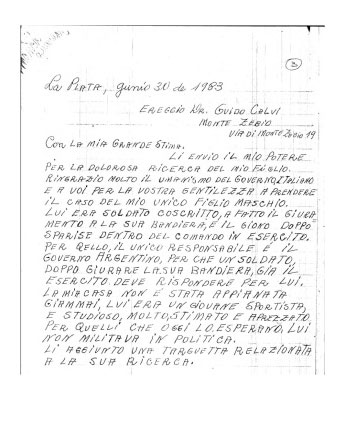 3
La PLATA, giunio 30 de 1983
EGREGGIO Dr. GUIDO CALVI
MONTE ZEBIO
VIA DI MONTE Zebio 19
Con LA MIA GRANDE STIMA.
Li ENVIO IL MIO POTERE
PER LA DOLOROSA RICERCA DEL MIO FIGLIO.
RINGRAZIO MOLTO IL UMANISMO DEL GOVERNO ITALIANO
E A VOI PER LA VOSTRA GENTILEZZA A PRENDERE
IL CASO DEL MIO UNICO FIGLIO MASCHIO.
LUI ERA SOLDATO COSCRITTO, A FATTO IL GIURA
MENTO A LA SUA BANDIERA, E IL GIONO DOPPO
SPARISE DENTRO DEL COMANDO IN ESERCITO.
PER QELLO, IL UNICO RESPONSABILE È IL
GOVERNO ARGENTINO, PER CHE UN SOLDATO,
DOPPO GIURARE LA SUA BANDIERA, GIA IL
ESERCITO DEVE RISPONDERE PER LUI.
LA MIA CASA NON È STATA APPIANATA
GIAMMAI, LUI ERA UN GIOVANE SPORTISTA,
E STUDIOSO, MOLTO, STIMATO E APREZZATO
PER QUELLI CHE OGGI LO, ESPERANO, LUI
NON MILITAVA IN POLITICA.
LI AGGIUNTO UNA TARGUETTA RELAZIONATA
A LA SUA RICERCA.